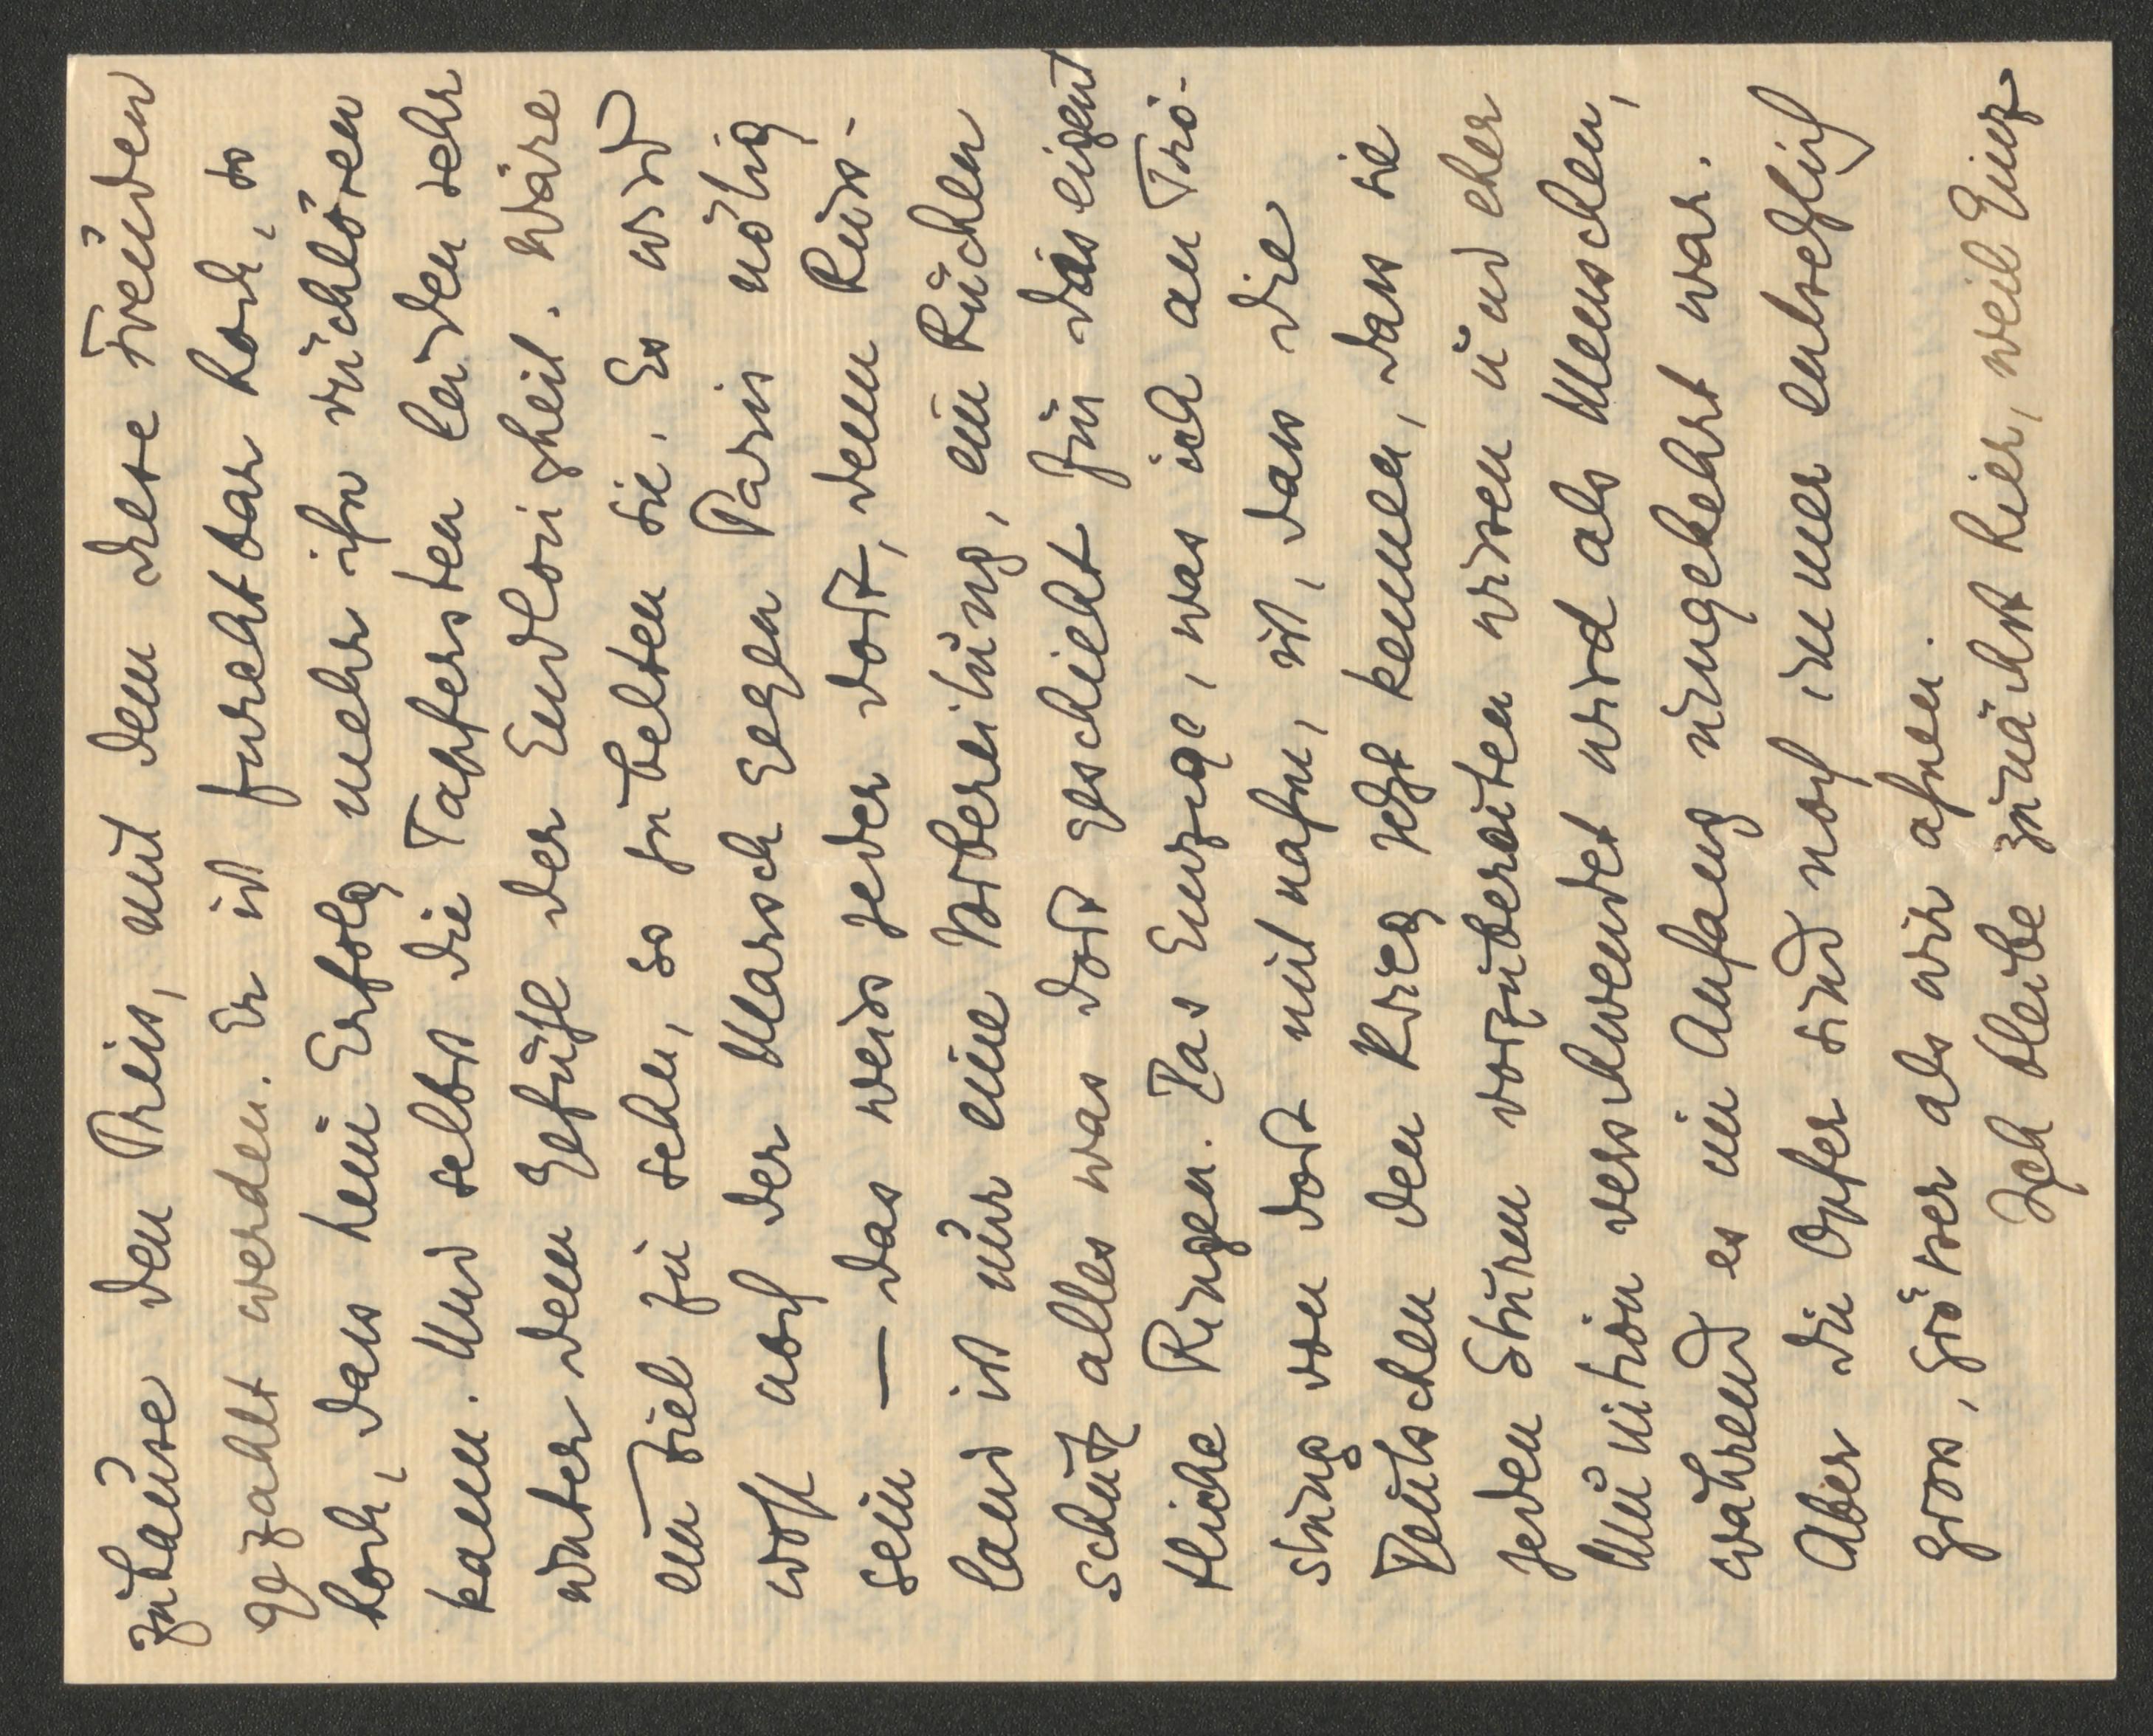 zuhause den Preis, mit dem diese Freuden
gezahlt werden. Er ist furchtbar hoch, so
hoch, dass kein Erfolg mehr ihn einlösen
kann. Und selbst die Tapfersten leiden sehr
unter dem Gefühle der Endlosigkeit. Wäre
ein Ziel zu sehen, so jubelten sie. Es wird
wohl noch der Marsch gegen Paris nötig
sein — das weiss jeder dort, denn Russ-
land ist nur eine Vorbereitung, ein Rücken
schutz alles was dort geschieht für das eigent
tliche Ringen. Das Einzige, was ich an Trö-
stung von dort mitnahm, ist, dass die
Deutschen den Krieg jetzt kennen, dass sie
jeden Sturm vorzubereiten wissen und eher
Munition verschwendet wird als Menschen,
während es im Anfang umgekehrt war.
Aber die Opfer sind noch immer entsetzlich
gross, grösser als wir ahnen.
Ich bleibe zunächst hier, weil Einz